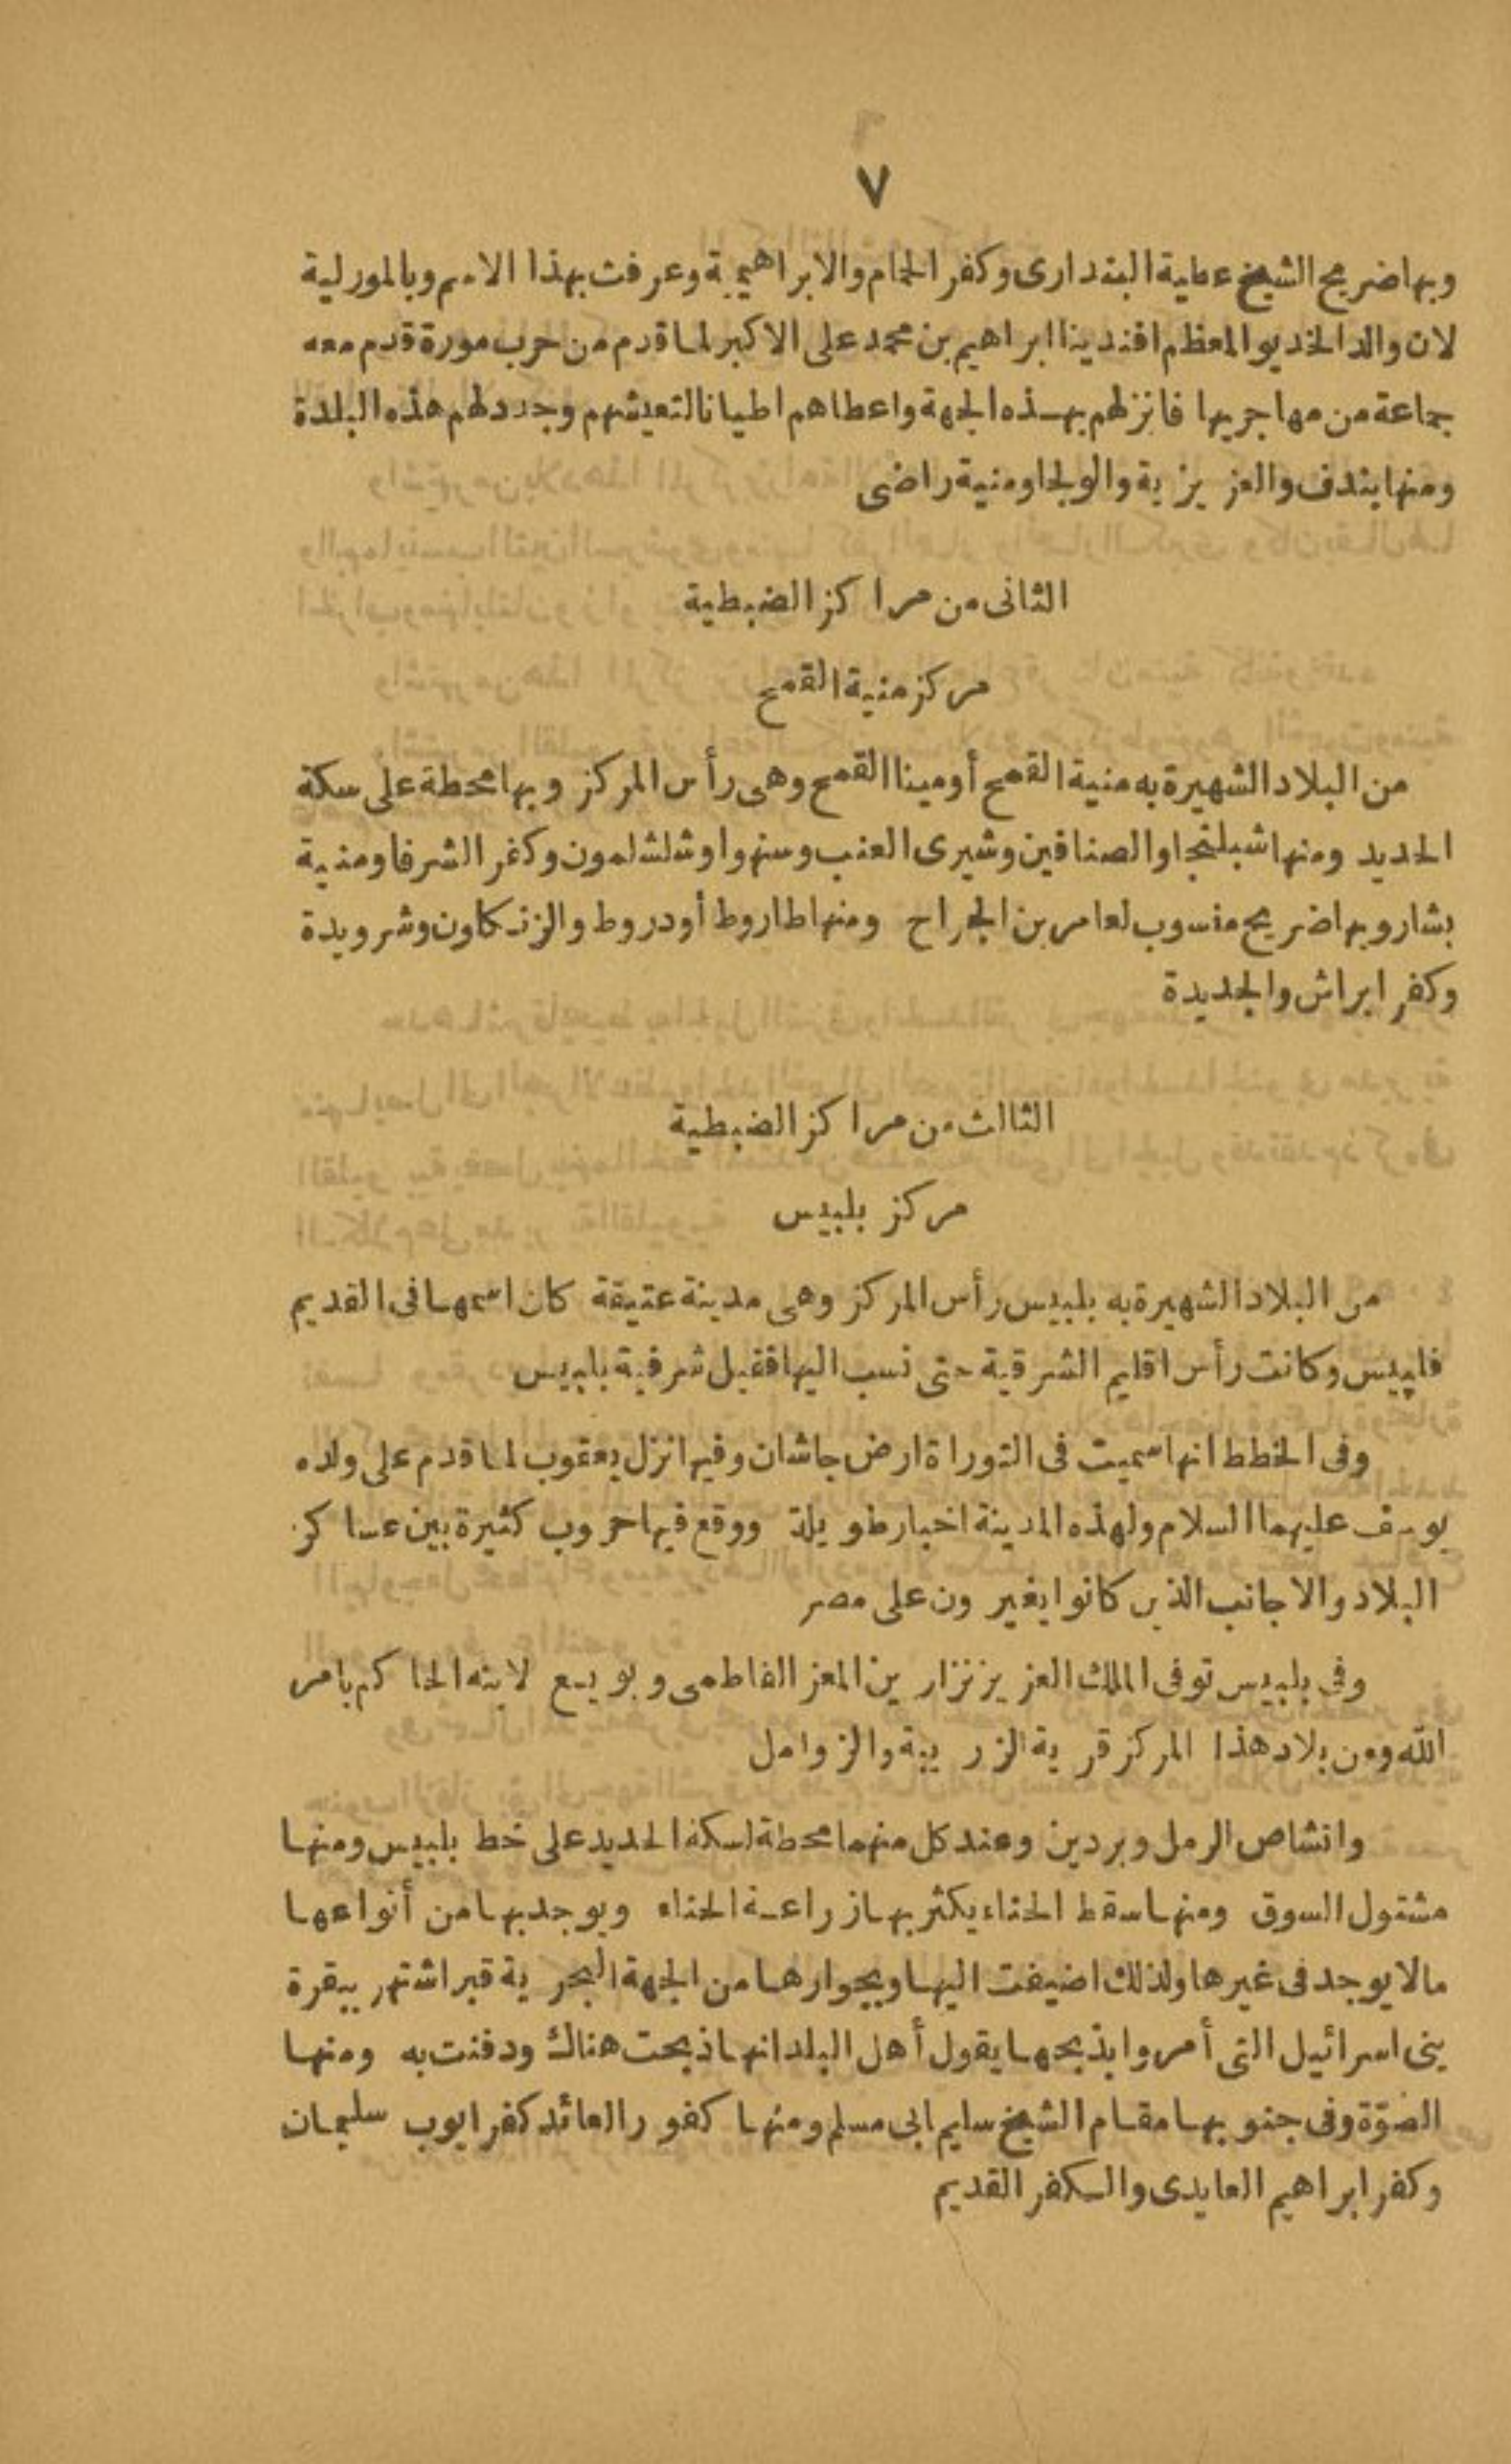 ٧
وبها ضريح الشيخ عطية البندارى وكفر الحمام والابراهيمية وعرفت بهذا الاسم وبالمورلية
لان والد الخديو المعظم افندينا ابراهيم بن محمد على الاكبر لما قدم من حرب مورة قدم معه
جماعة من مهاجريها فانزلهم بهذه الجهة واعطاهم اطيانا لتعيشهم وجدد لهم هذه البلدة
ومنها بندف والعزيزية والولجا ومنية راضى
الثانى من مراكز الضبطية
مركز منية القمح
من البلاد الشهيرة به منية القمح أومينا القمح وهى رأس المركز وبها محطة على سكة
الحديد ومنها شبلنجا والصنافين وشيرى العنب وسنهوا وشلشلمون وكفر الشرفا ومنية
بشار وبها ضريح منسوب لعامر بن الجراح ومنها طاروط أودروط والزنكاون وشرويدة
وكفر ابراش والجديدة
الثالث من مراكز الضبطية
مركز بلبيس
من البلاد الشهيرة به بلبيس رأس المركز وهى مدينة عتيقة كان اسمها فى القديم
فلبيس وكانت رأس اقليم الشرقية حتى نسب اليها فقيل شرقية بلبيس
وفى الخطط انها سميت فى التوراة ارض جاشان وفيها نزل يعقوب لما قدم على ولده
يوسف عليهما السلام ولهذه المدينة اخبار طويلة ووقع فيها حروب كثيرة بين عساكر
البلاد والاجانب الذين كانوا يغيرون على مصر
وفى بلبيس توفى الملك العزيز نزار بن المعز الفاطمى وبويع لابنه الحاكم بامر
الله ومن بلاد هذا المركز قرية الزريبة والزوامل
وانشاص الرمل وبردين وعند كل منهما محطة لسكة الحديد على خط بلبيس ومنها
مشتول السوق ومنها سفط الحناء يكثر بها زراعة الحناء ويوجد بها من أنواعها
مالا يوجد فى غيرها ولذلك اضيفت اليها وبجوارها من الجهة البحرية قبر اشتهر ببقرة
بنى اسرائيل التى أمروا بذبحها يقول أهل البلد انها ذبحت هناك ودفنت به ومنها
الضوّة وفى جنوبها مقام الشيخ سليم ابى مسلم ومنها كفور العائد كفر ايوب سليمان
وكفر ابراهيم العايدى والكفر القديم